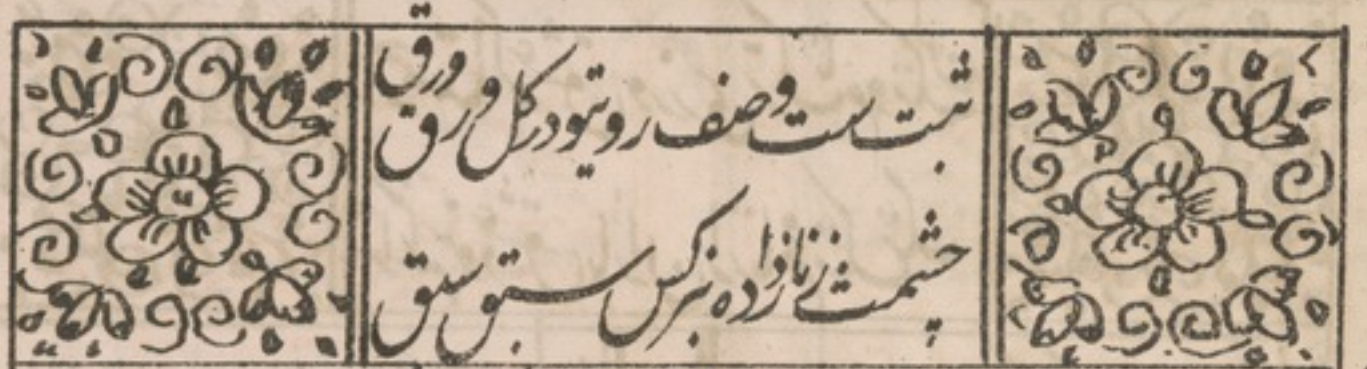 ثبت ست وصف رویتو در گل ورق ورق
چشمت ز ناز داده بنرگس سبق سبق